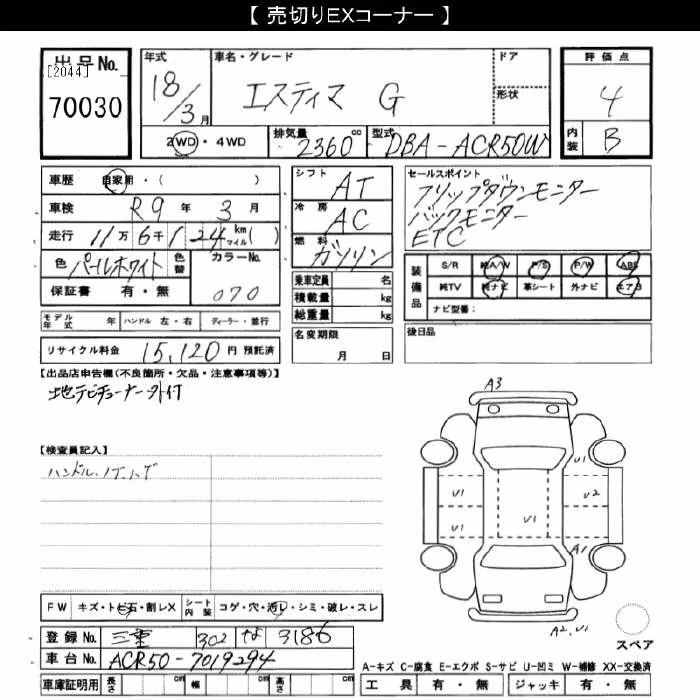 【 売切りEXコーナー 】
出品No.
[2044]
70030
年式
18/3月
車名・グレード
エスティマ G
ドア
形状
評価点
4
内装
B
2WD・4WD
排気量
2360cc
型式
DBA-ACR50W
車歴 自家用・( )
車検 R9年 3月
走行 11万6千124 km マイル( )
色 パールホワイト
色替
カラーNo.
070
保証書 有・無
シフト AT
冷房 AC
燃料 ガソリン
乗車定員 名
積載量 kg
総重量 kg
セールスポイント
フリップダウンモニター
バックモニター
ETC
装備品
S/R 純A/W P/S P/W ABS
純TV 純ナビ 革シート 外ナビ エアB
ナビ型番:
モデル年式 年 ハンドル 左・右 ディーラー・並行
名変期限
月 日
後日品
リサイクル料金 15,120円 預託済
【出品店申告欄(不良箇所・欠品・注意事項等)】
地デジチューナー外付
【検査員記入】
A3
U1
U1
U2
U1
U1
A1
A2,U1
スペア
FW キズ・トビ石・割レX シート内装 コゲ・穴・汚レ・シミ・破レ・スレ
登録No. 三重 302 な 3186
車台No. ACR50-7019294
車庫証明用 長さ cm 幅 cm 高さ cm
A-キズ C-腐食 E-エクボ S-サビ U-凹ミ W-補修 XX-交換済
工具 有・無 ジャッキ 有・無